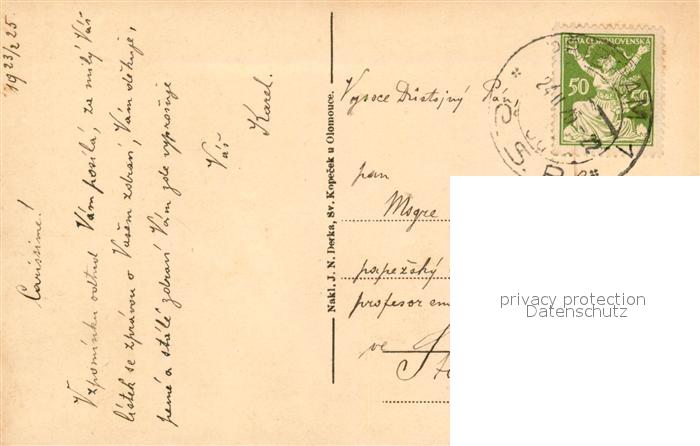 19 23/2 25.
Carissime!
Vzpomínku odtud Vám posílá, za milý Váš
lístek se zprávou o Vašem zdraví, Vám děkuje,
pevné a stálé zdraví Vám zde vyprošuje
Váš
Karel.
Nakl. J. N. Derka, Sv. Kopeček u Olomouce.
POŠTA ČESKOSLOVENSKÁ
50 50
Vysoce Důstojný Pán,
pan
Msgre
papežský
profesor em
ve
privacy protection
Datenschutz